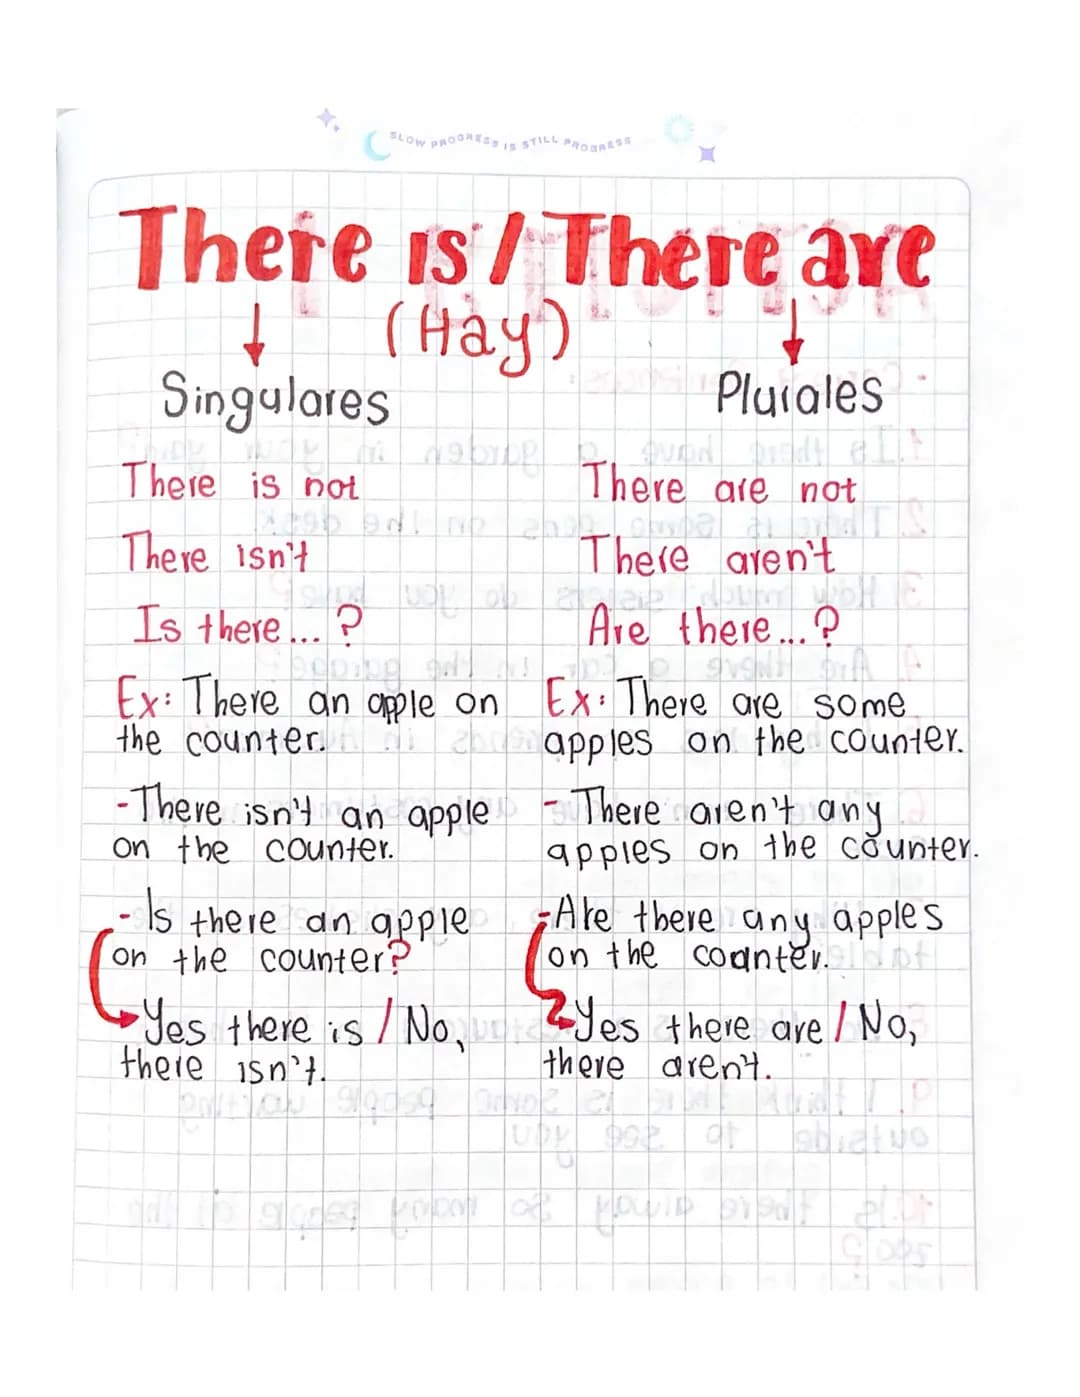 SLOW PROGRESS IS STILL PROGRESS
There is / There are
(Hay)
Singulares
Plurales
There is not
There are not
There isn't
There aren't
Is there... ?
Are there... ?
Ex: There an apple on
the counter.
Ex: There are some
apples on the counter.
- There isn't an apple
on the counter.
- There aren't any
apples on the counter.
- Is there an apple
on the counter?
- Are there any apples
on the counter.
Yes there is / No,
there isn't.
Yes there are / No,
there aren't.